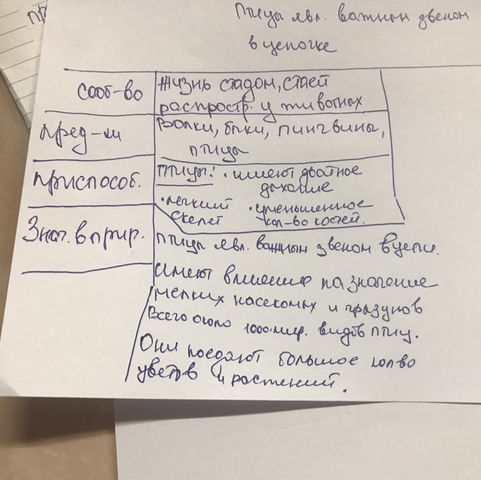 Птицы явл. важным звеном
в цепочке
сооб-во
Жизнь стадом, стаей
распростр. у животных
пред-ли
Волки, быки, пингвины,
птицы
приспособ.
Птицы: • имеют двойное
дыхание
• легкий
скелет
• уменьшенное
кол-во костей.
Знач. в прир.
Птицы явл. важным звеном в цепи.
имеют влияние на значение
мелких насекомых и грызунов
Всего около 1000 мир. видов птиц.
Они поедают большое кол-во
цветов и растений.